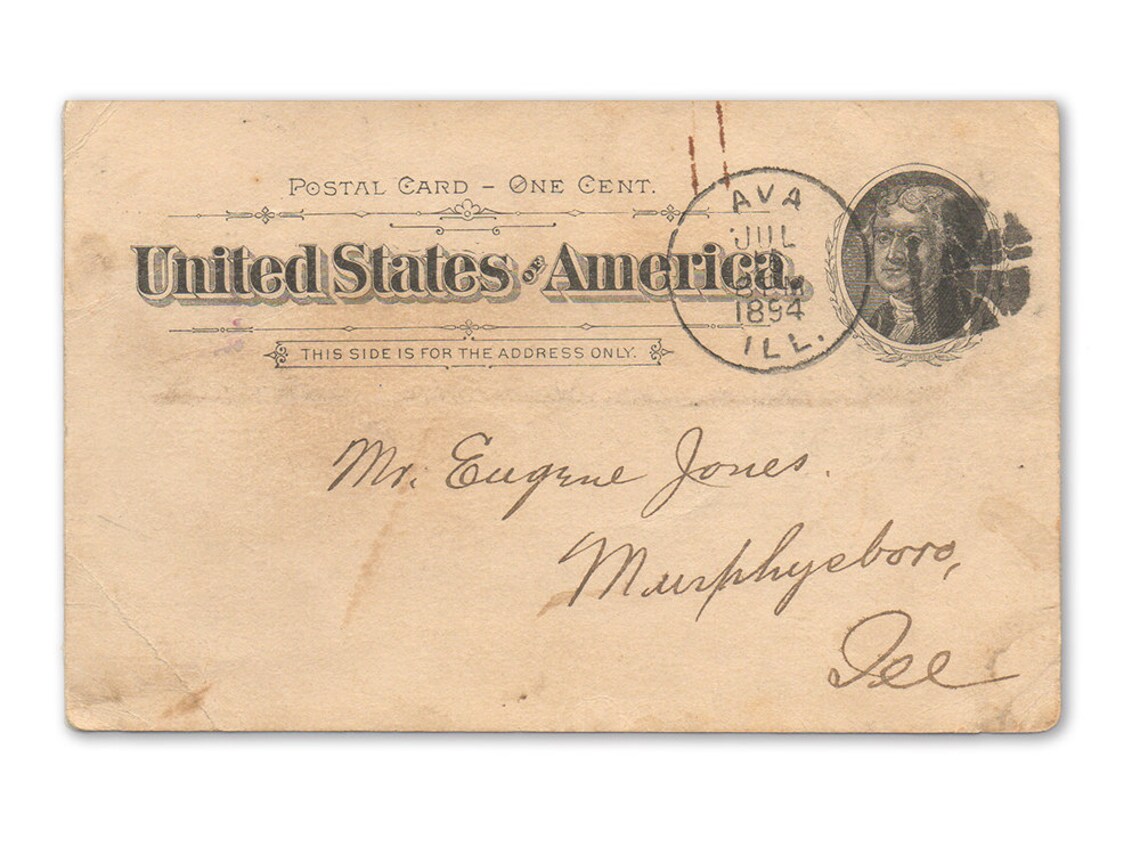 POSTAL CARD – ONE CENT.
United States of America
THIS SIDE IS FOR THE ADDRESS ONLY.
AVA
JUL
1894
ILL.
Mr. Eugene Jones.
Murphysboro,
Ill